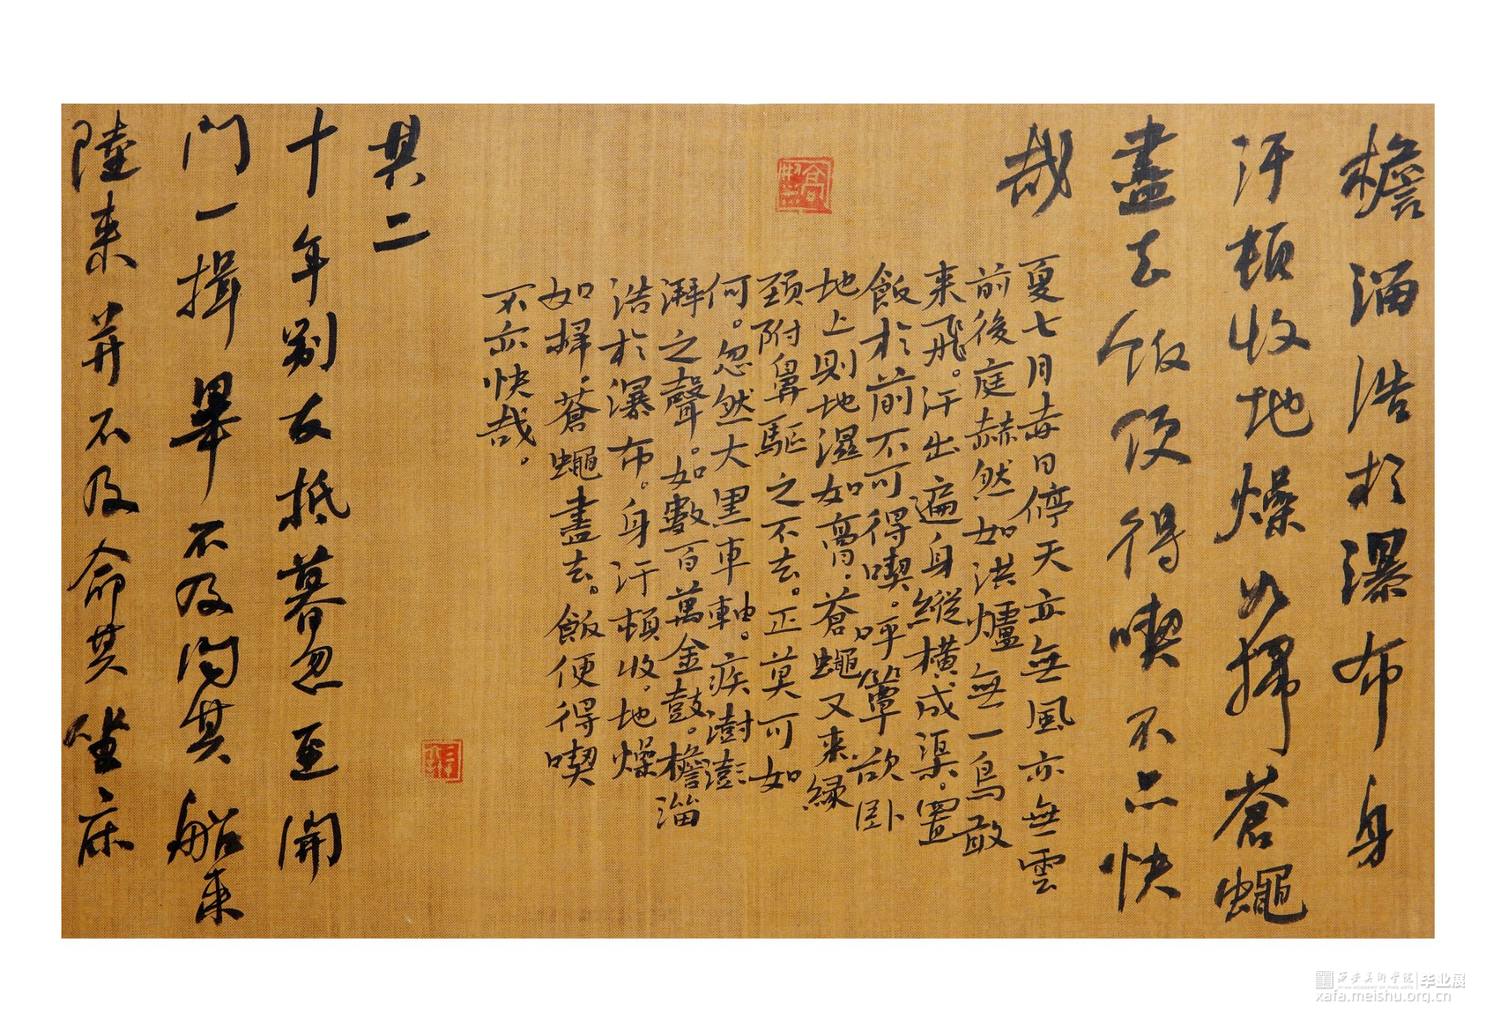 檐溜浩於瀑布身
汗頓收地燥如掃蒼蠅
盡去飯便得喫不亦快
哉
夏七月每日停天亦無風亦無雲
前後庭赫然如洪爐無一鳥敢
来飛。汗出遍身縱横成渠。置
飯於前不可得喫。呼簟欲卧
地上則地濕如膏。蒼蠅又来緣
頸附鼻驅之不去。正莫可如
何。忽然大黑車軸。疾澍澎
湃之聲。如數百萬金鼓。檐溜
浩於瀑布。身汗頓收。地燥
如掃。蒼蠅盡去。飯便得喫
不亦快哉。
其二
十年别友抵暮忽至開
門一揖畢不及問其船来
陸来并不及命其坐床
西安美術學院 毕业展
xafa.meishu.org.cn